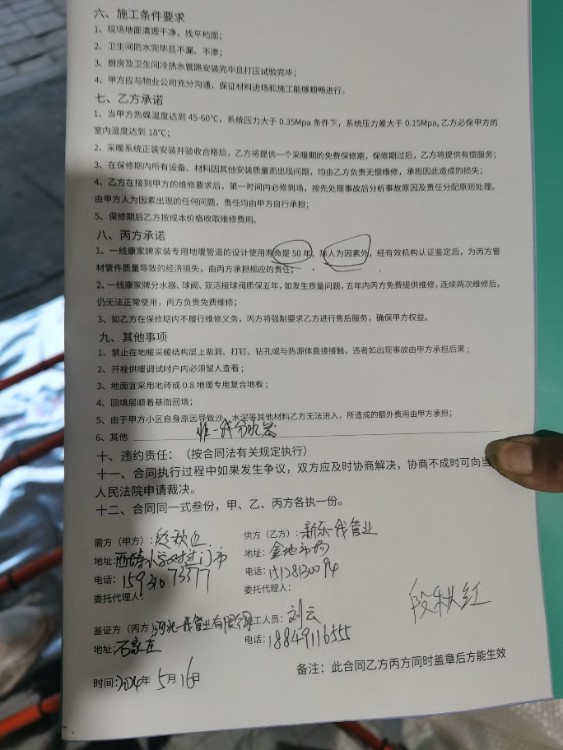 六、施工条件要求
1、现场地面清理干净，找平地面；
2、卫生间防水完毕且不漏、不渗；
3、厨房及卫生间冷热水管路安装完毕且打压试验完毕；
4、甲方应与物业公司充分沟通，保证材料进场和施工能够顺畅进行。
七、乙方承诺
1、当甲方热媒温度达到 45-60℃，系统压力大于 0.35Mpa 条件下，系统压力差大于 0.15Mpa,乙方必保甲方的
室内温度达到 18℃；
2、采暖系统正装安装并验收合格后，乙方将提供一个采暖期的免费保修期，保修期过后，乙方将提供有偿服务；
3、在保修期内所有设备、材料因其他安装质量而出现问题，均由乙方负责无偿维修，承担因此造成的损失；
4、乙方在接到甲方的维修要求后，第一时间内必修到场，按先处理事故后分析事故原因及责任分配原则处理。
由甲方人为因素出现的任何问题，责任均由甲方自行承担；
5、保修期后乙方按成本价格收取维修费用。
八、丙方承诺
1、一线康家牌家装专用地暖管道的设计使用寿命是 50 年，除人为因素外，经有效机构认证鉴定后，为丙方管
材管件质量导致的经济损失，由丙方承担相应的责任；
2、一线康家牌分水器、球阀、双活接球阀质保五年，如发生质量问题，五年内丙方免费提供维修，连续两次维修后，
仍无法正常使用，丙方负责免费维修；
3、如乙方在保修期内不履行维修义务，丙方将强制要求乙方进行售后服务，确保甲方权益。
九、其他事项
1、禁止在地暖采暖结构层上凿洞、打钉、钻孔或与热源体直接接触，违者如出现事故由甲方承担后果；
2、开栓供暖调试时户内必须留人查看；
3、地面宜采用地砖或 0.8 地暖专用复合地板；
4、回填层顺着基面回填；
5、由于甲方小区自身原因导致沙、水泥等其他材料乙方无法进入，所造成的额外费用由甲方承担；
6、其他 非一线分水器
十、违约责任：（按合同法有关规定执行）
十一、合同执行过程中如果发生争议，双方应及时协商解决，协商不成时可向当
人民法院申请裁决。
十二、合同同一式叁份，甲、乙、丙方各执一份。
需方（甲方）： 供方（乙方）：新乐一线管业
地址： 地址：金地市场
电话：15931073377 电话：15128130094
委托代理人： 委托代理人：
段秋红
鉴证方（丙方）河北一线管业有限公司 工人员：刘云
地址：石家庄 电话：18849116555
备注：此合同乙方丙方同时盖章后方能生效
时间：2024年 5月 16日